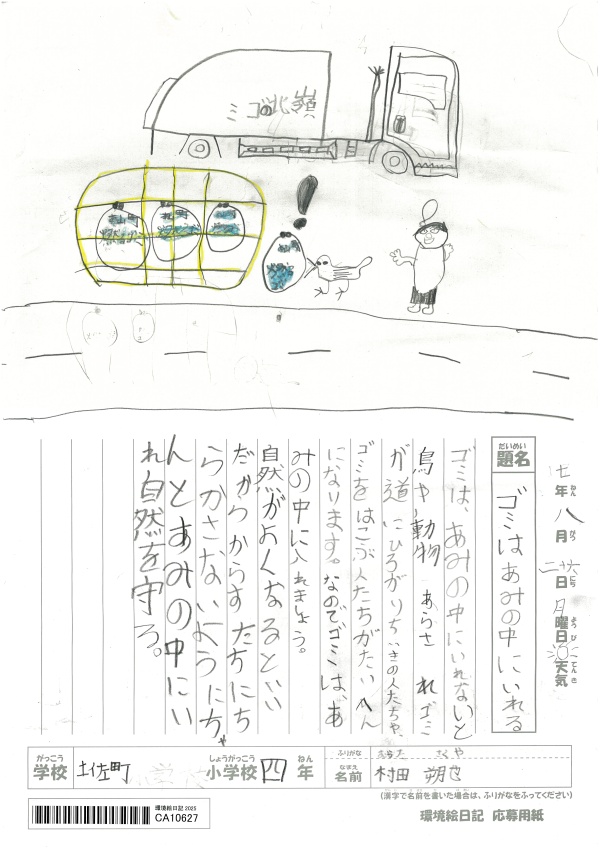 嶺北のゴミ
！
七年八月二十六日月曜日天気
ねん
がつ
にち
ようび
てんき
だいめい
題名
ゴミはあみの中にいれる
ゴミは、あみの中にいれないと
鳥や動物 あらさ れゴミ
が道にひろがりちいきの人たちや、
ゴミをはこぶ人たちがたいへん
になります。なのでゴミは、あ
みの中に入れましょう。
自然がよくなるといい
だからからすたちにち
らかさないようにちゃ
んとあみの中にい
れ自然を守ろ。
がっこう
学校
土佐町
しょうがっこう
小学校
四
ねん
年
ふりがな
むらた さくや
なまえ
名前
村田 朔也
(漢字で名前を書いた場合は、ふりがなをふってください)
環境絵日記 2025
CA10627
環境絵日記 応募用紙